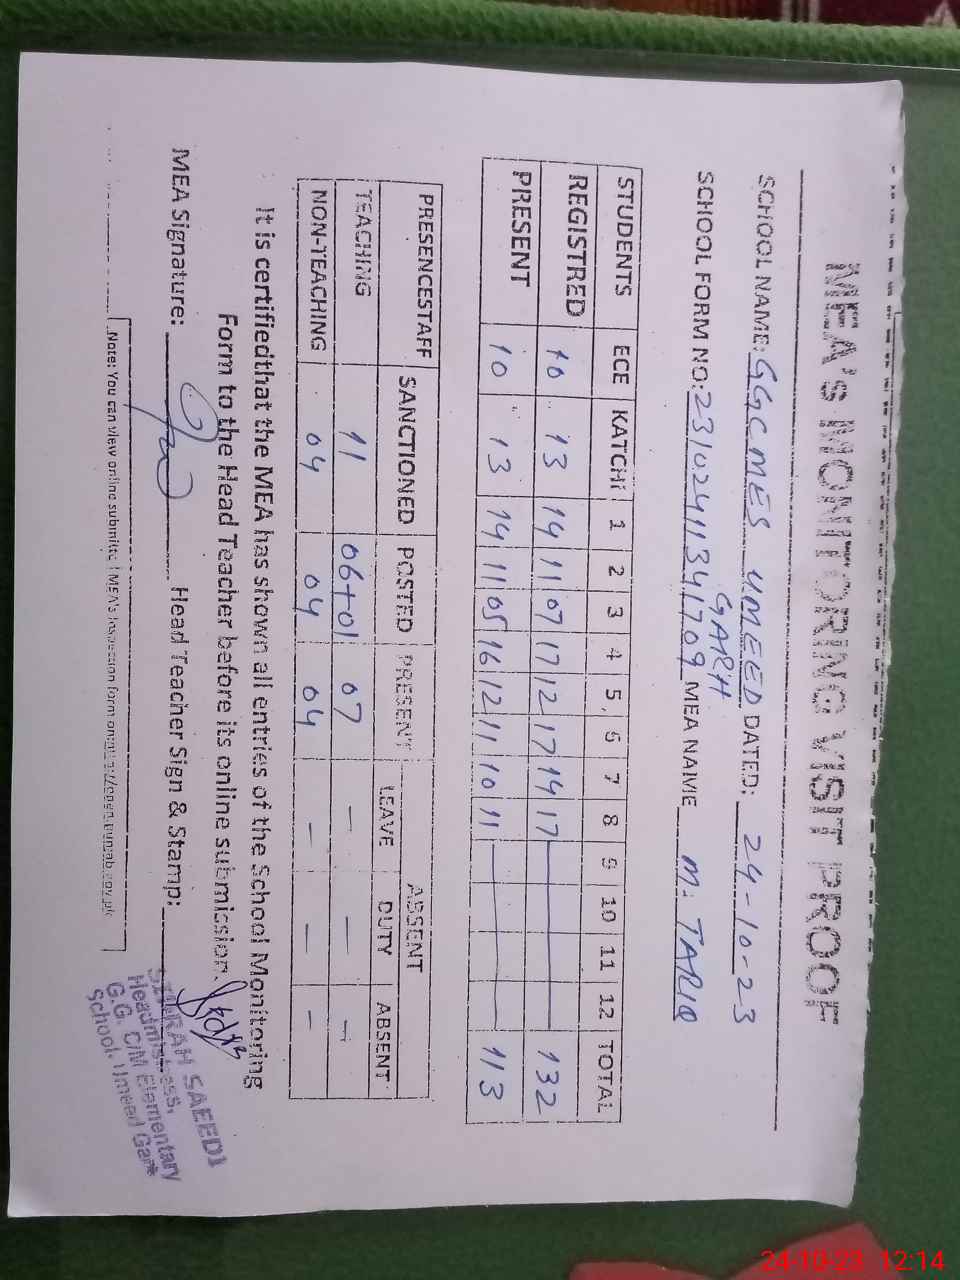 MEA'S MONITORING VISIT PROOF
SCHOOL NAME: GGCMES UMEED GARH DATED: 24-10-23
SCHOOL FORM NO: 23102411341709 MEA NAME M. TARIQ
STUDENTS ECE KATCHI 1 2 3 4 5 6 7 8 9 10 11 12 TOTAL
REGISTRED 10 13 14 11 07 17 12 17 14 17 132
PRESENT 10 13 14 11 05 16 12 11 10 11 113
PRESENCESTAFF SANCTIONED POSTED PRESENT ABSENT
LEAVE DUTY ABSENT
TEACHING 11 06+01 07 - - -
NON-TEACHING 04 04 04 - - -
It is certifiedthat the MEA has shown all entries of the School Monitoring
Form to the Head Teacher before its online submission.
MEA Signature: Head Teacher Sign & Stamp:
SAEEDI
Headmistress,
G.G. C/M Elementary
School Umeed Garh
Note: You can view online submitted MEA's Inspection form on open.punjab.gov.pk
24-10-23 12:14